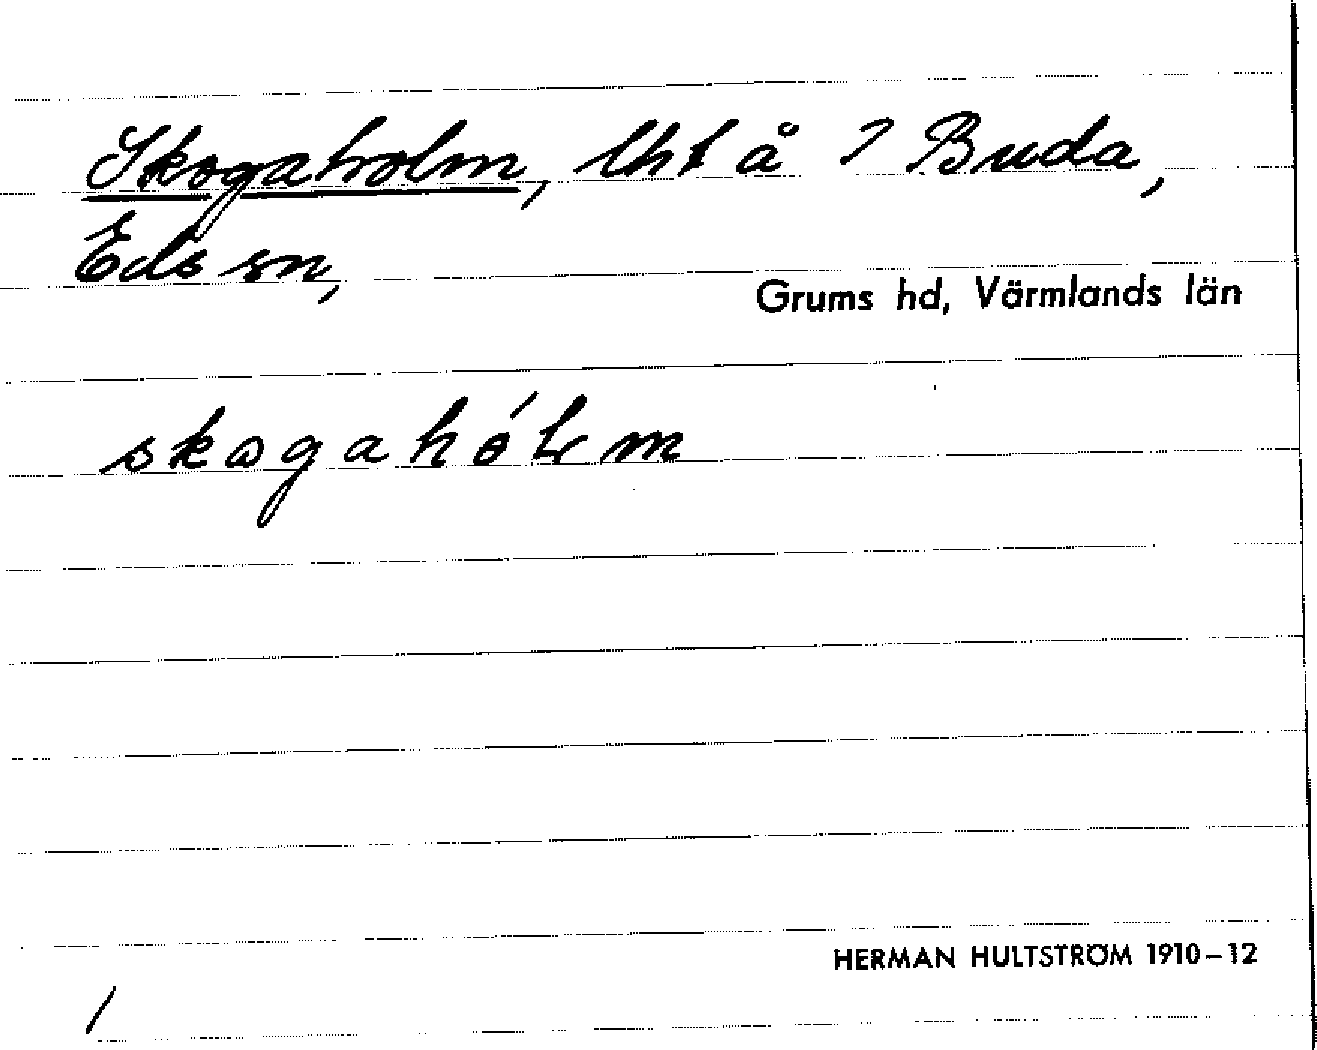 Skogaholm, lht å ? Buda,
Eds sn,
Grums hd, Värmlands län
skogahólm
HERMAN HULTSTRÖM 1910–12
/